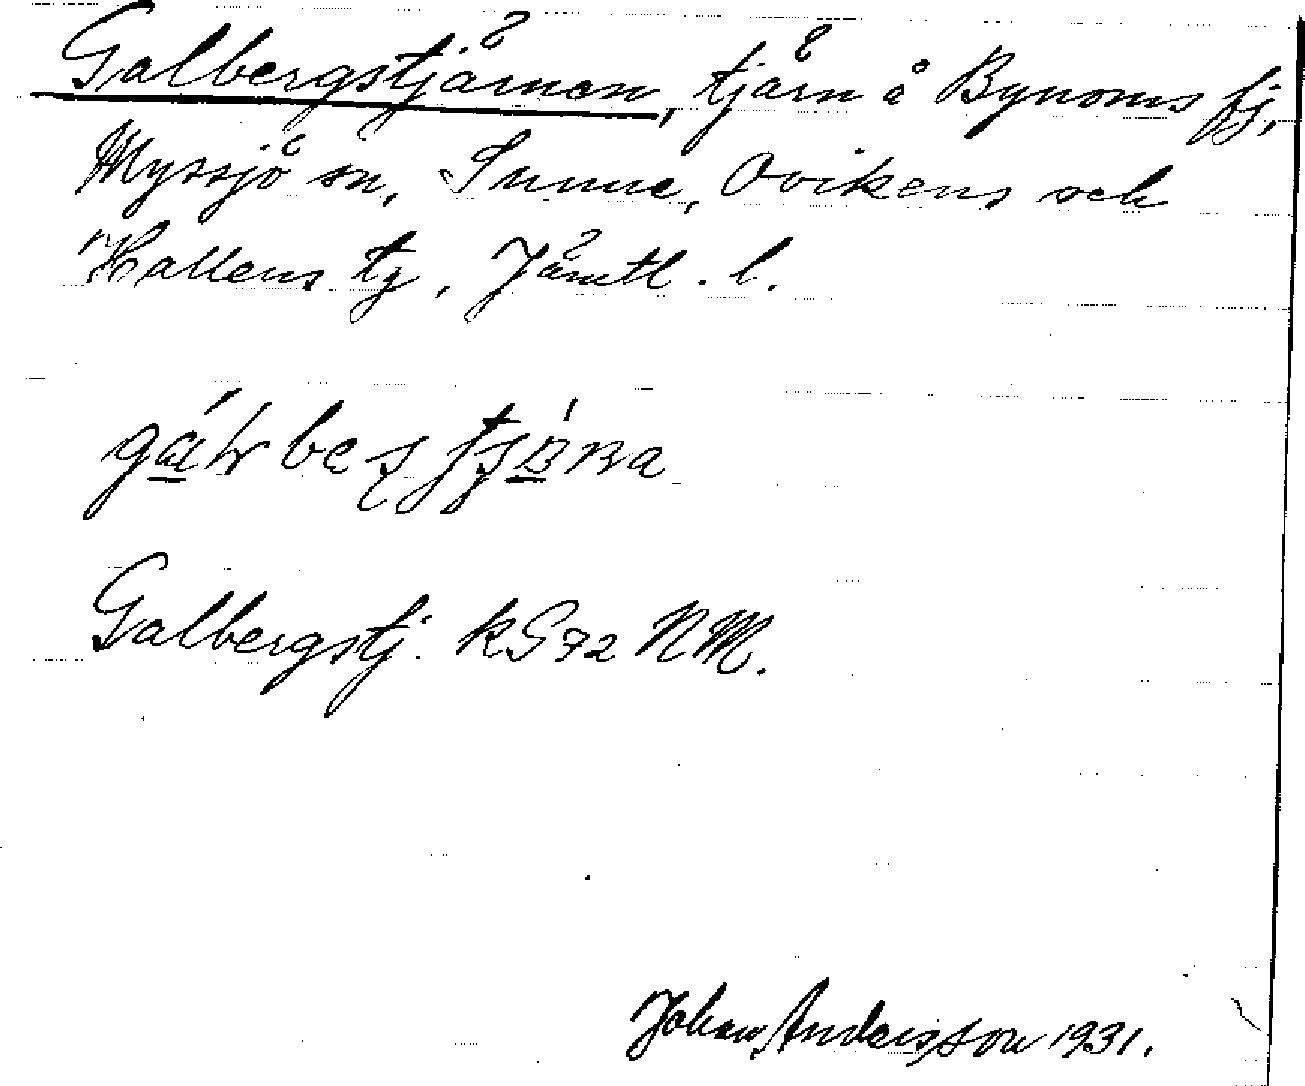 Galbergstjärnen, tjärn å Bynoms fj,
Myssjö sn, Sunne, Ovikens och
Hallens tg, Jämtl. l.
Galbergstj. KG 72 NM.
Johan Andersson 1931.